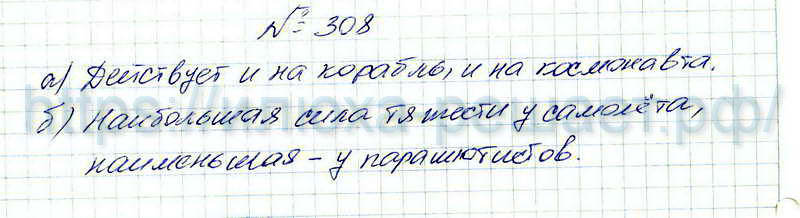 № 308
а) Действует и на корабль, и на космонавта.
б) Наибольшая сила тяжести у самолёта,
наименьшая – у парашютистов.